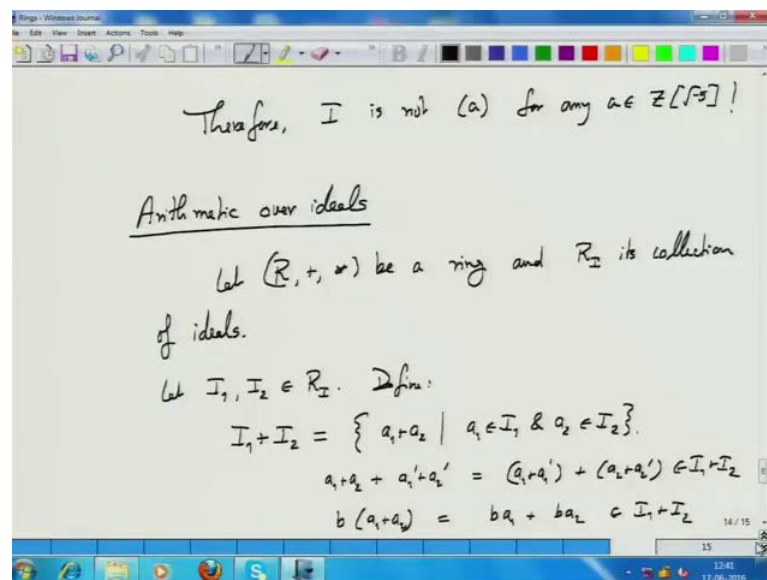 Rings - Windows Journal
File Edit View Insert Actions Tools Help
Therefore, I is not (a) for any a ∈ Z[√-5] !
Arithmatic over ideals
Let (R, +, *) be a ring and R_I its collection
of ideals.
Let I₁, I₂ ∈ R_I. Define:
I₁+I₂ = { a₁+a₂ | a₁ ∈ I₁ & a₂ ∈ I₂}.
a₁+a₂ + a₁'+a₂' = (a₁+a₁') + (a₂+a₂') ∈ I₁+I₂
b (a₁+a₂) = ba₁ + ba₂ ∈ I₁+I₂
14 / 15
15
12:41
17-06-2016